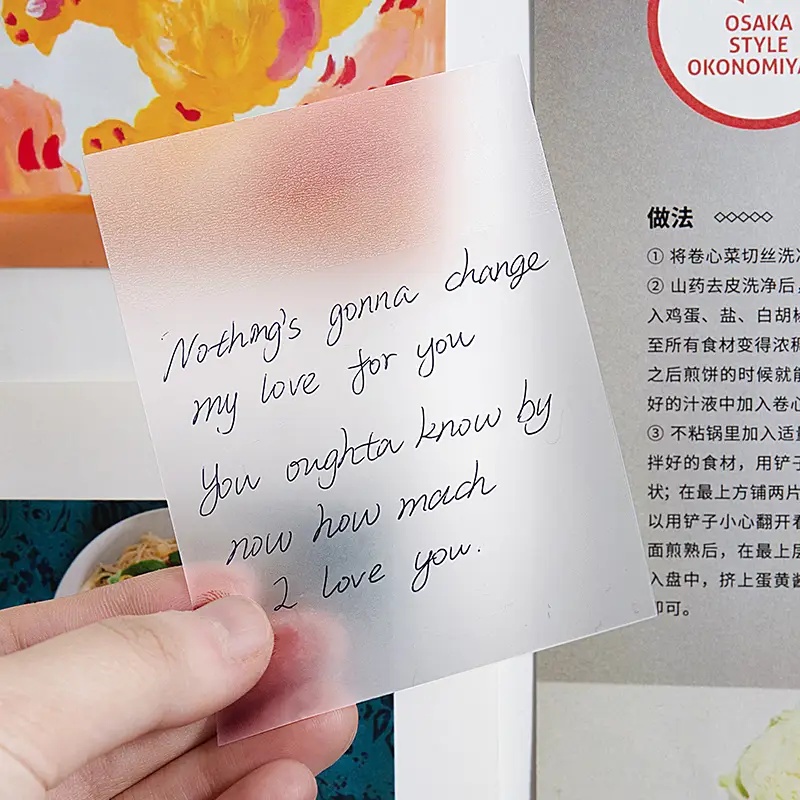 Nothing's gonna change
my love for you
You oughta know by
now how much
I love you.
OSAKA
STYLE
做法
① 将卷心菜切丝洗
② 山药去皮洗净后,
入鸡蛋、盐、白胡
至所有食材变得浓
之后煎饼的时候就
好的汁液中加入卷心
③ 不粘锅里加入适
拌好的食材,用铲子
状;在最上方铺两片
以用铲子小心翻开
面煎熟后,在最上
入盘中,挤上蛋黄
即可。